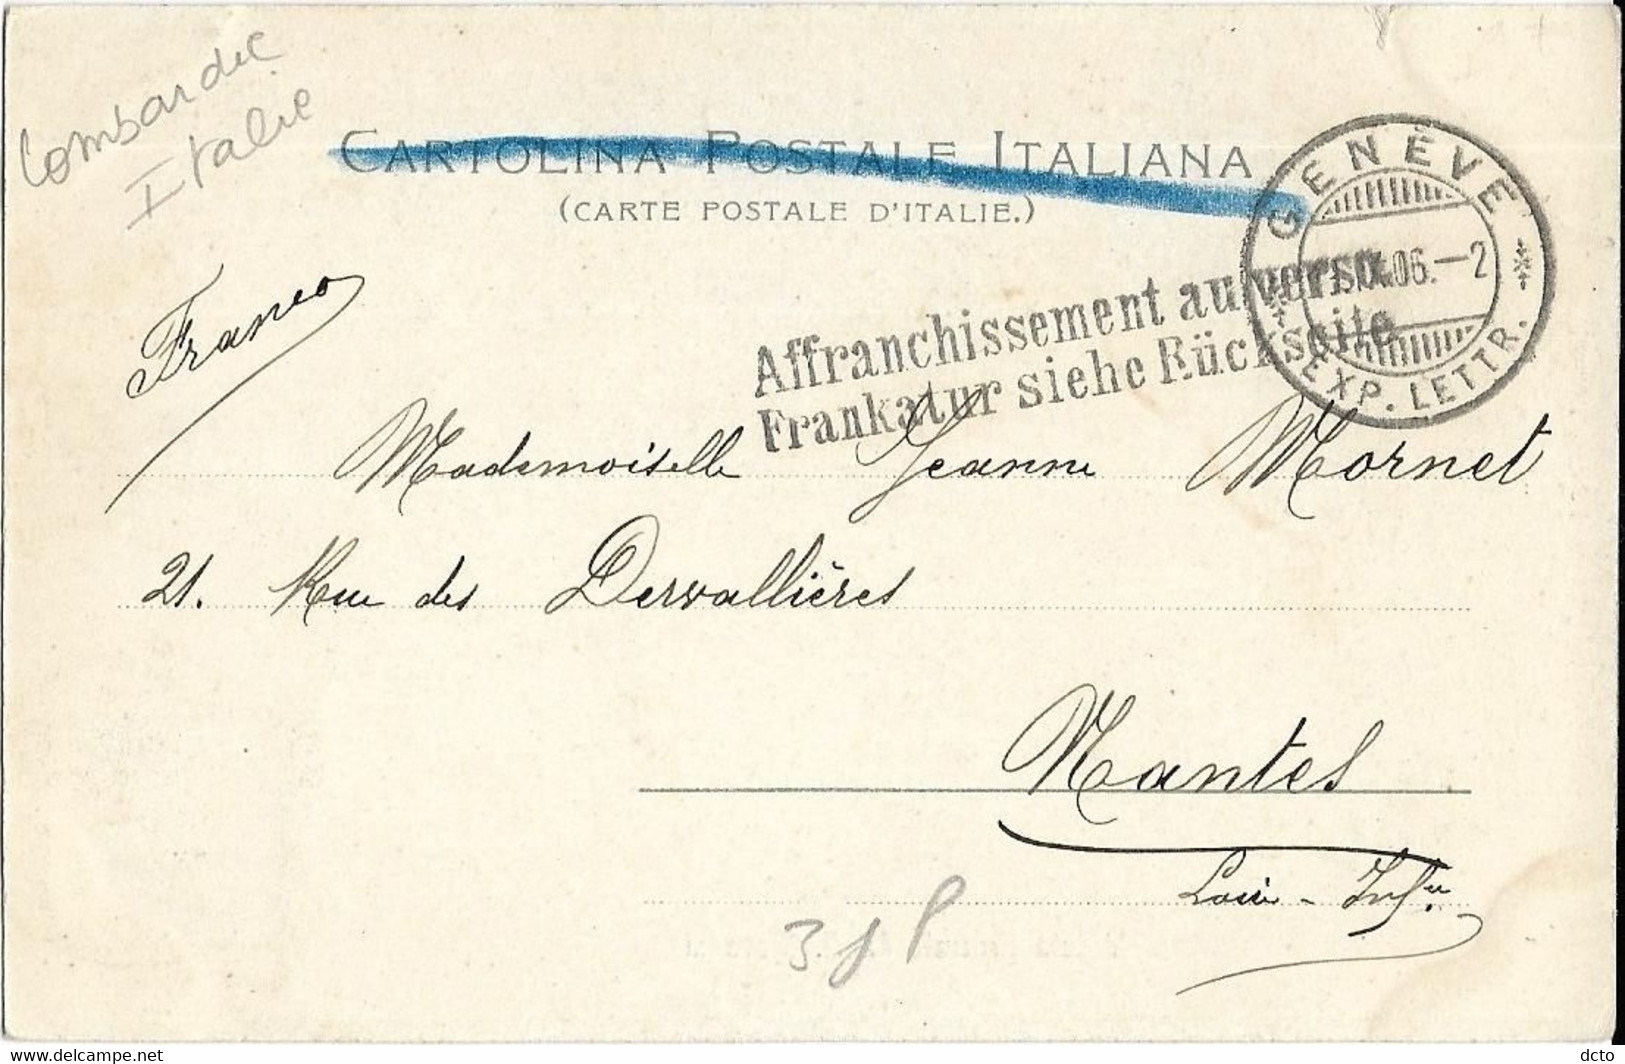 Lombardie
Italie
CARTOLINA POSTALE ITALIANA
(CARTE POSTALE D'ITALIE.)
GENÈVE
06.–2
EXP. LETTR.
Affranchissement au verso.
Frankatur siehe Rückseite
Franco
Mademoiselle Jeanne Mornet
21. Rue des Dervallières
Nantes
Loire - Infre
www.delcampe.net
dcto